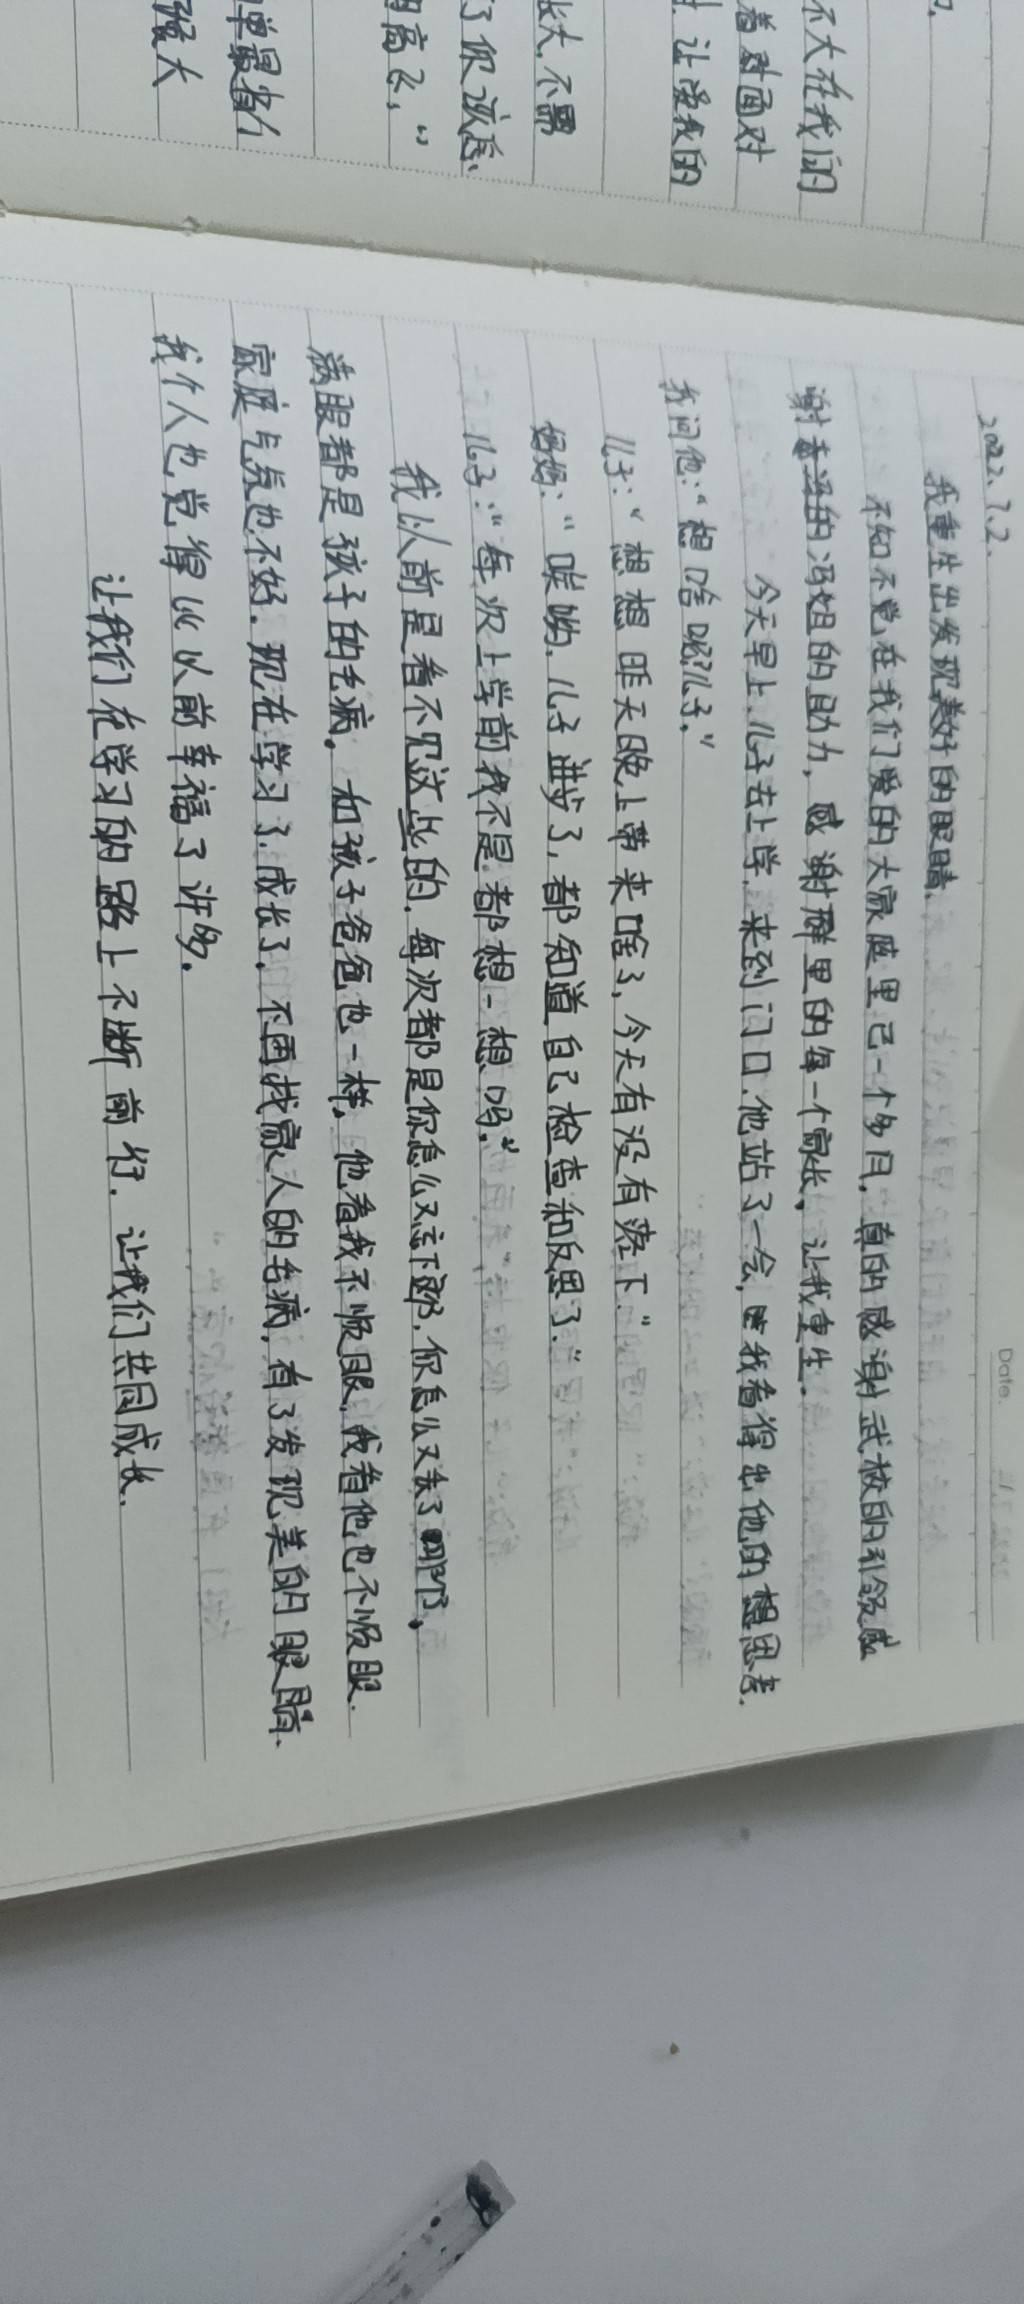 不大在我们的
着对面对
让爱我的
长大,不需
了你该忘、
的高飞,”
单最省个
强大
2022.7.2.
Date.
我重生出发现美好的眼睛.
不知不觉在我们爱的大家庭里已一个多月,真的感谢武校的引领感
谢春
的冯姐的助力,感谢群里的每一个家长,让我重生.
今天早上,儿子去上学,来到门口,他站了一会,我看得出他的想思考.
我问他:“想啥呢?儿子.”
儿子:“想想昨天晚上带来啥了,今天有没有落下.”
妈妈:“哎呦,儿子进步了,都知道自己检查和反思了.”
儿子:“每次上学前我不是都想一想吗.”
我以前是看不见这些的,每次都是你怎么又忘下那,你怎么又丢了哪了,
满眼都是孩子的毛病。和孩子爸爸也一样,他看我不顺眼,我看他也不顺眼.
家庭气氛也不好.现在学习了,成长了,不再找家人的毛病,有了发现美的眼睛.
我个人也觉得比以前幸福了许多.
让我们在学习的路上不断前行.让我们共同成长.